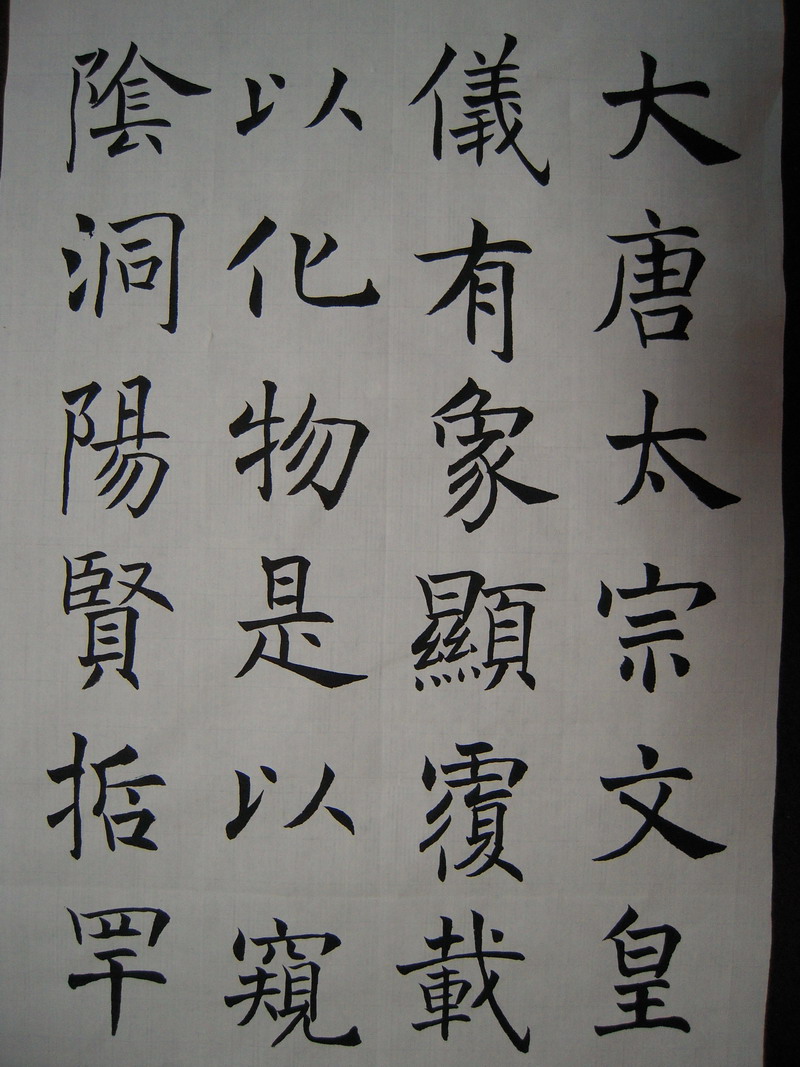 大唐太宗文皇
儀有象顯覆載
以化物是以窺
陰洞陽賢哲罕